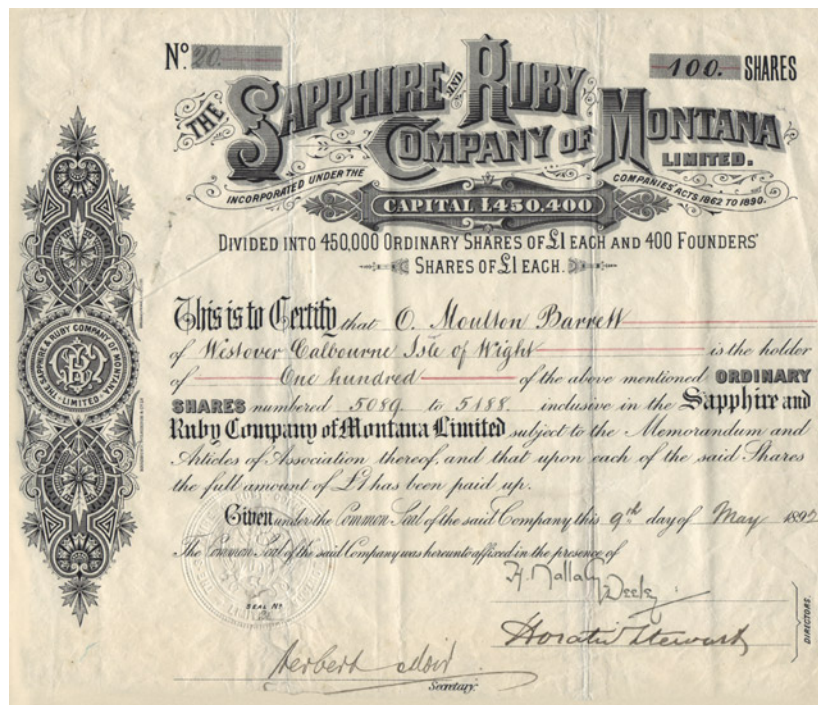 Nº 20
100. SHARES
THE SAPPHIRE AND RUBY
COMPANY OF MONTANA
LIMITED.
INCORPORATED UNDER THE COMPANIES ACTS 1862 TO 1890.
CAPITAL £450,400
DIVIDED INTO 450,000 ORDINARY SHARES OF £1 EACH AND 400 FOUNDERS'
SHARES OF £1 EACH.
This is to Certify that O. Moulton Barrett
of Westover Calbourne Isle of Wight is the holder
of One hundred of the above mentioned ORDINARY
SHARES numbered 5089 to 5188 inclusive in the Sapphire and
Ruby Company of Montana Limited subject to the Memorandum and
Articles of Association thereof, and that upon each of the said Shares
the full amount of £1 has been paid up.
Given under the Common Seal of the said Company this 9th day of May 1892
The Common Seal of the said Company was hereunto affixed in the presence of
Horatio Stewart
DIRECTORS.
Herbert
Secretary.
SEAL Nº
THE SAPPHIRE & RUBY COMPANY OF MONTANA
LIMITED